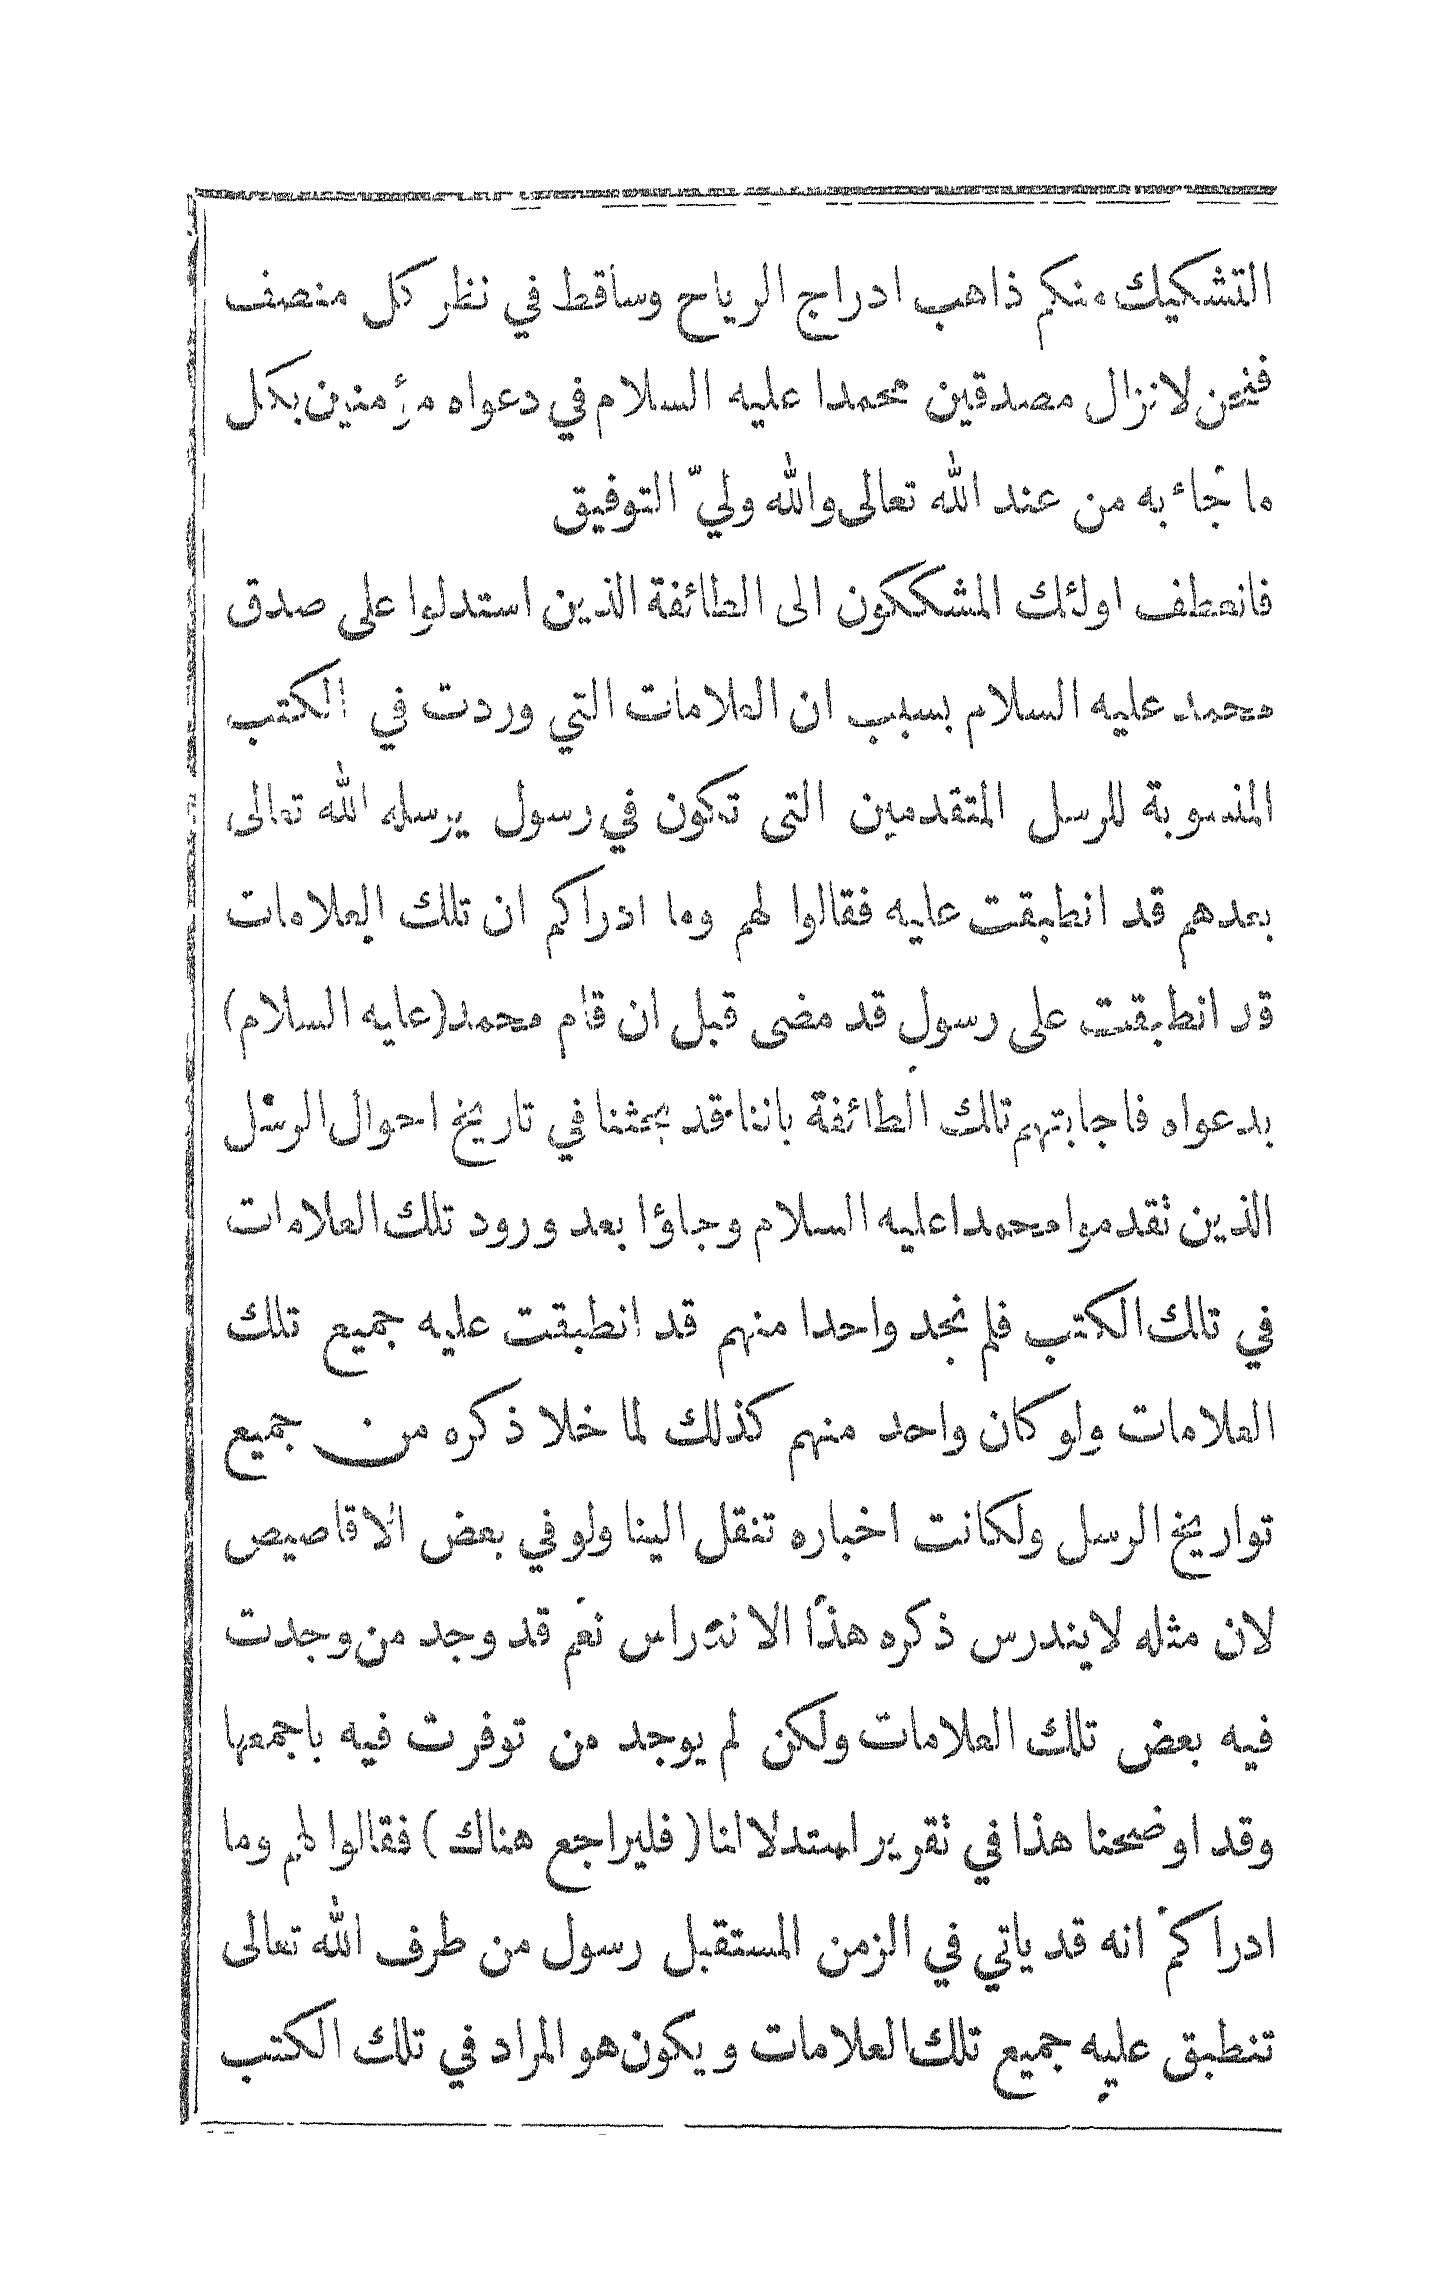 التشكيك منكم ذاهب ادراج الرياح وساقط في نظر كل منصف
فنحن لانزال مصدقين محمدا عليه السلام في دعواه مؤمنين بكل
ما جاء به من عند الله تعالى والله وليّ التوفيق
فانعطف اولئك المشككون الى الطائفة الذين استدلوا على صدق
محمد عليه السلام بسبب ان العلامات التي وردت في الكتب
المنسوبة للرسل المتقدمين التى تكون في رسول يرسله الله تعالى
بعدهم قد انطبقت عليه فقالوا لهم وما ادراكم ان تلك العلامات
قد انطبقت على رسول قد مضى قبل ان قام محمد (عليه السلام)
بدعواه فاجابتهم تلك الطائفة باننا قد بحثنا في تاريخ احوال الرسل
الذين تقدموا محمدا عليه السلام وجاؤا بعد ورود تلك العلامات
في تلك الكتب فلم نجد واحدا منهم قد انطبقت عليه جميع تلك
العلامات ولو كان واحد منهم كذلك لما خلا ذكره من جميع
تواريخ الرسل ولكانت اخباره تنقل الينا ولو في بعض الاقاصيص
لان مثله لايندرس ذكره هذا الاندراس نعم قد وجد من وجدت
فيه بعض تلك العلامات ولكن لم يوجد من توفرت فيه باجمعها
وقد اوضحنا هذا في تقرير استدلالنا (فليراجع هناك) فقالوا لهم وما
ادراكم انه قد ياتي في الزمن المستقبل رسول من طرف الله تعالى
تنطبق عليه جميع تلك العلامات ويكون هو المراد في تلك الكتب